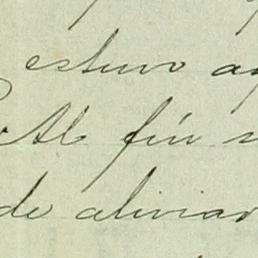 estuvo
Al fin
de aliviar